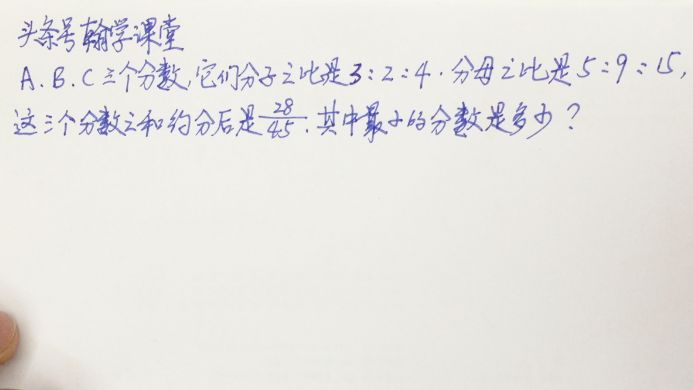 头条号翰学课堂
A.B.C三个分数,它们分子之比是3:2:4.分母之比是5:9:15,
这三个分数之和约分后是28/45.其中最小的分数是多少?